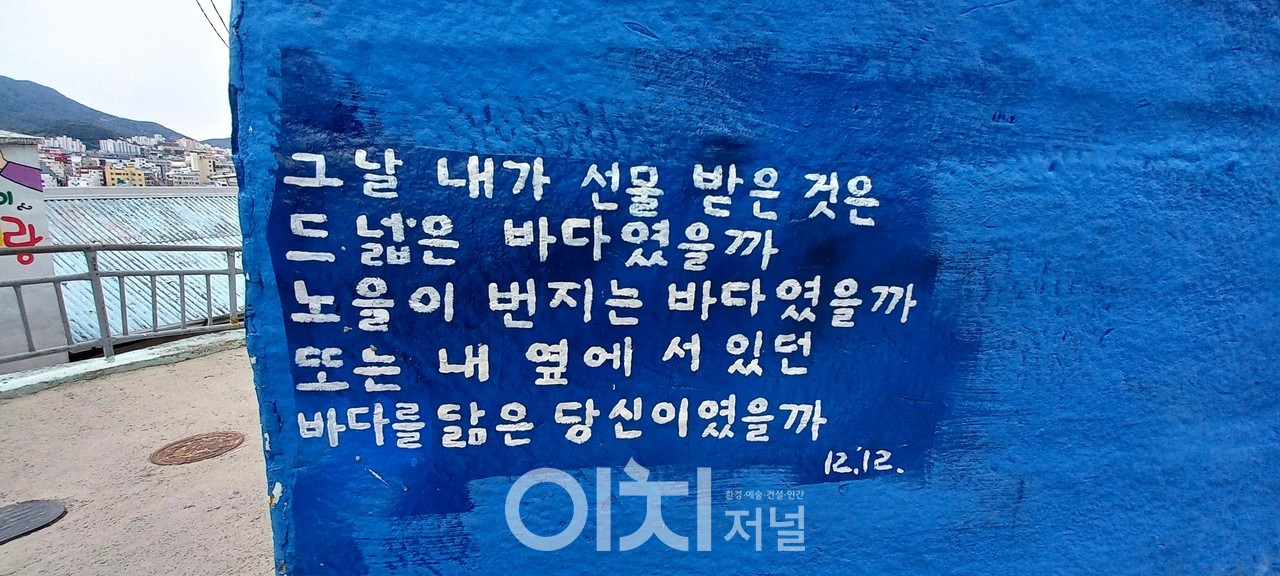 그날 내가 선물 받은 것은
드넓은 바다였을까
노을이 번지는 바다였을까
또는 내 옆에 서 있던
바다를 닮은 당신이였을까
12.12.
이
랑
이치저널
환경·예술·건설·인간